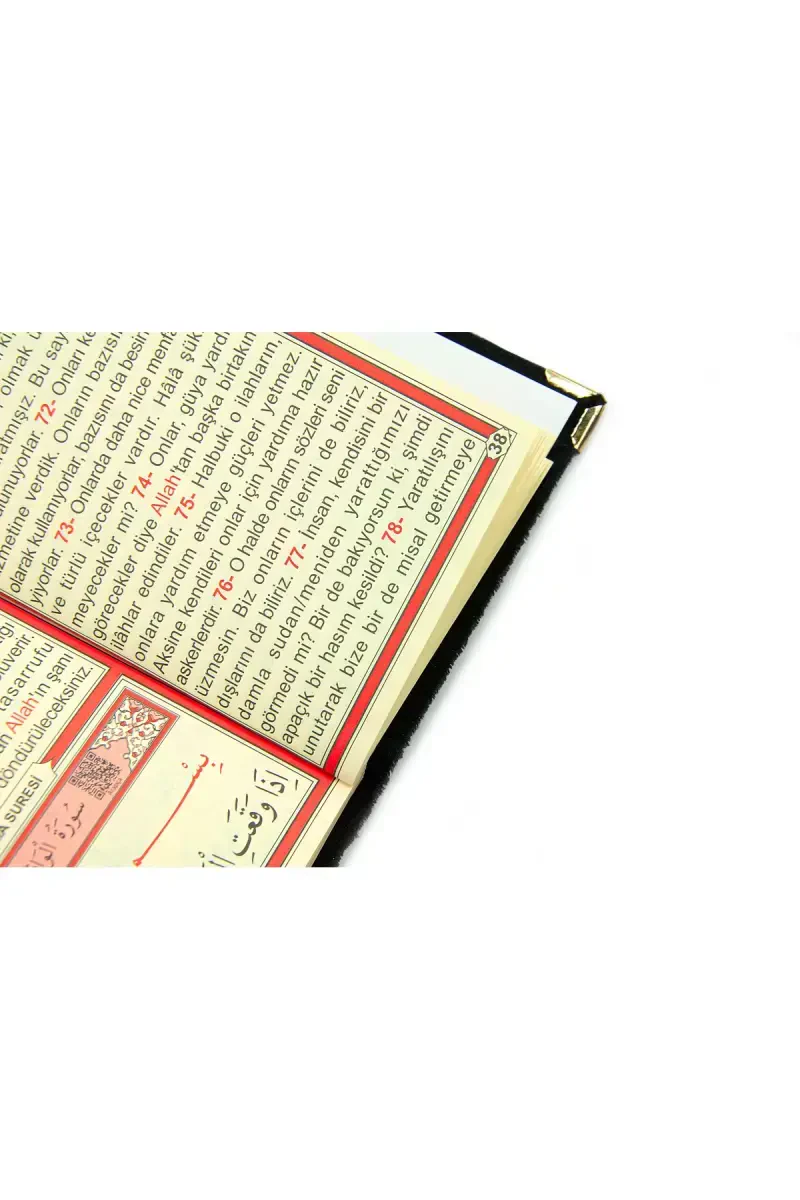 olmak
ratmışız. Bu say
lunuyorlar. 72- Onları
zmetine verdik. Onların bazısı
olarak kullanıyorlar, bazısını da besin
yiyorlar. 73- Onlarda daha nice menfa
ve türlü içecekler vardır. Hâlâ şük
meyecekler mi? 74- Onlar, güya yardı
görecekler diye Allah'tan başka birtakım
ilânlar edindiler. 75- Halbuki o ilahların,
onlara yardım etmeye güçleri yetmez.
Aksine kendileri onlar için yardıma hazır
askerlerdir. 76- O halde onların sözleri seni
üzmesin. Biz onların içlerini de biliriz,
dışlarını da biliriz. 77- İnsan, kendisini bir
damla sudan/meniden yarattığımızı
görmedi mi? Bir de bakıyorsun ki, şimdi
apaçık bir hasım kesildi? 78- Yaratılışını
unutarak bize bir de misal getirmeye
38
uverir.
tasarrufu
an Allah'ın şanı
döndürüleceksiniz
A SURESİ
سُورَةُ الْوَا
بِسْ
إِذَا وَقَعَتِ الْ